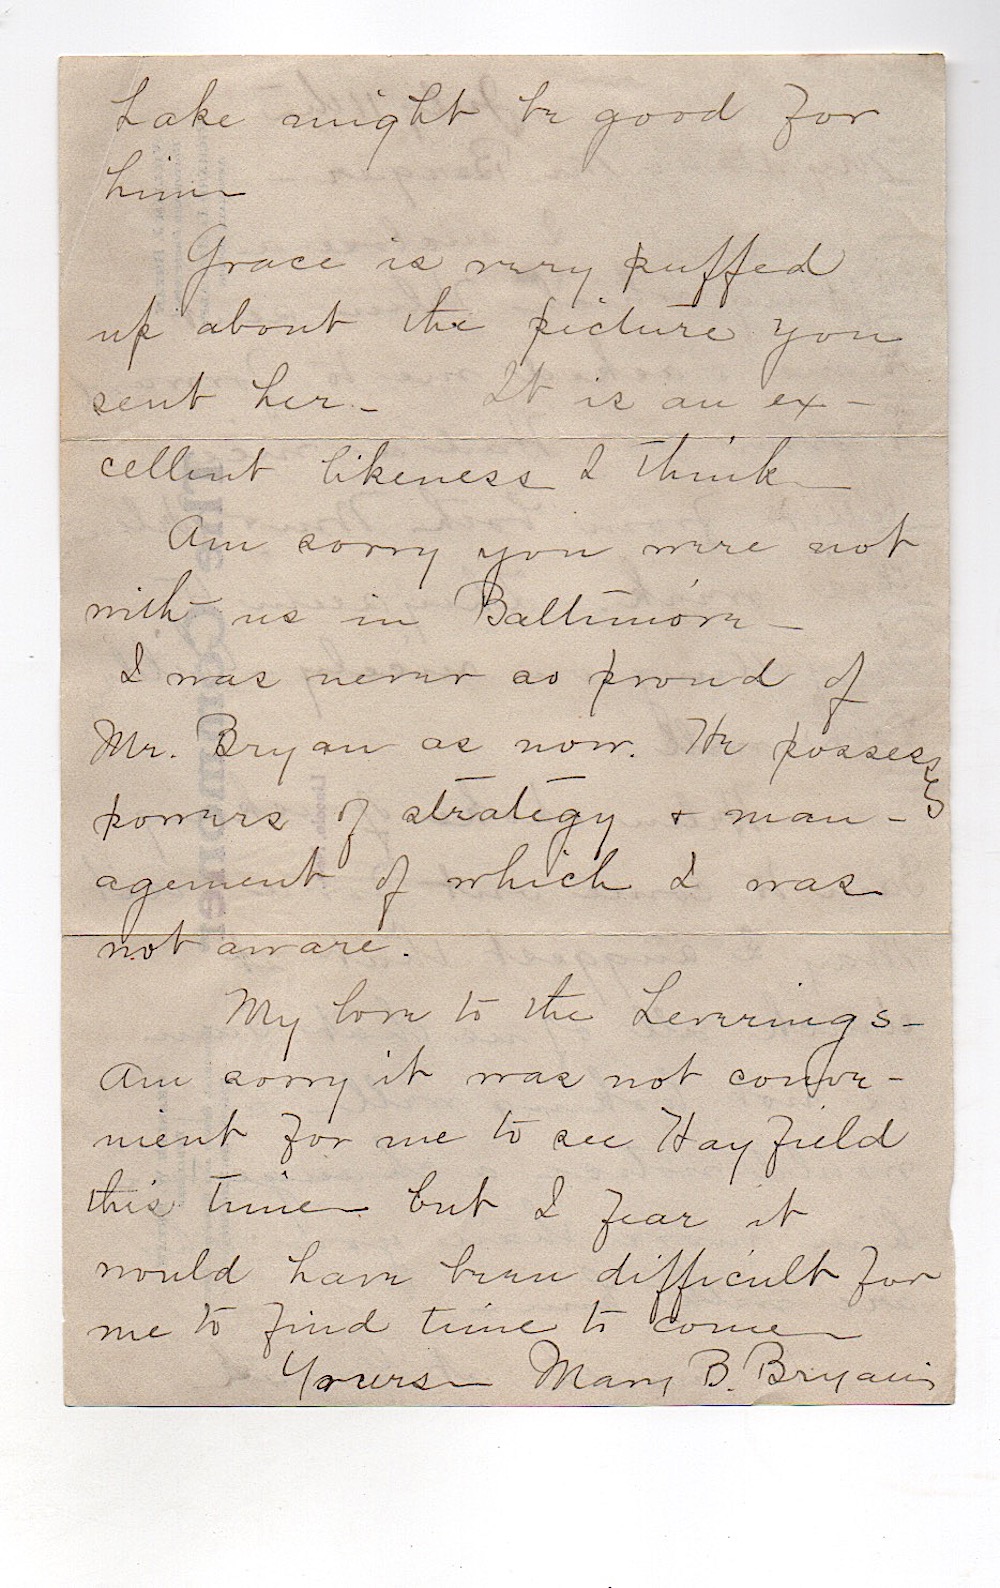 Lake might be good for
him—
Grace is very puffed
up about the picture you
sent her— It is an ex-
cellent likeness I think—
Am sorry you were not
with us in Baltimore—
I was never so proud of
Mr. Bryan as now. He possesses
powers of strategy + man-
agement of which I was
not aware.
My love to the Leverings—
Am sorry it was not conve-
nient for me to see Hayfield
this time— but I fear it
would have been difficult for
me to find time to come—
Yours— Mary B. Bryan